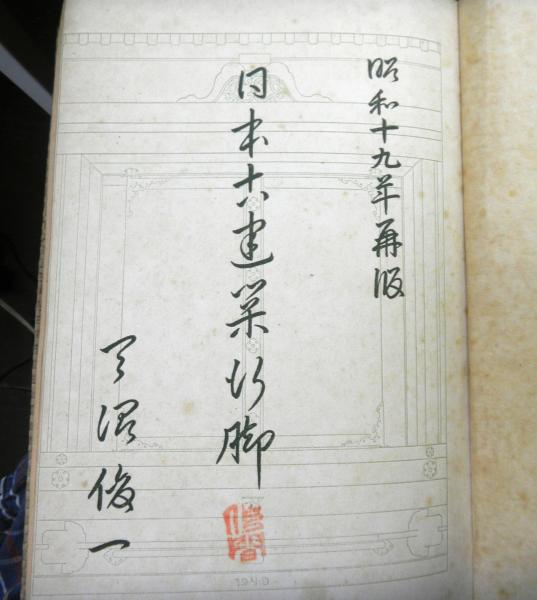 昭和十九年再版
日本古建築行脚
天沼俊一
1940